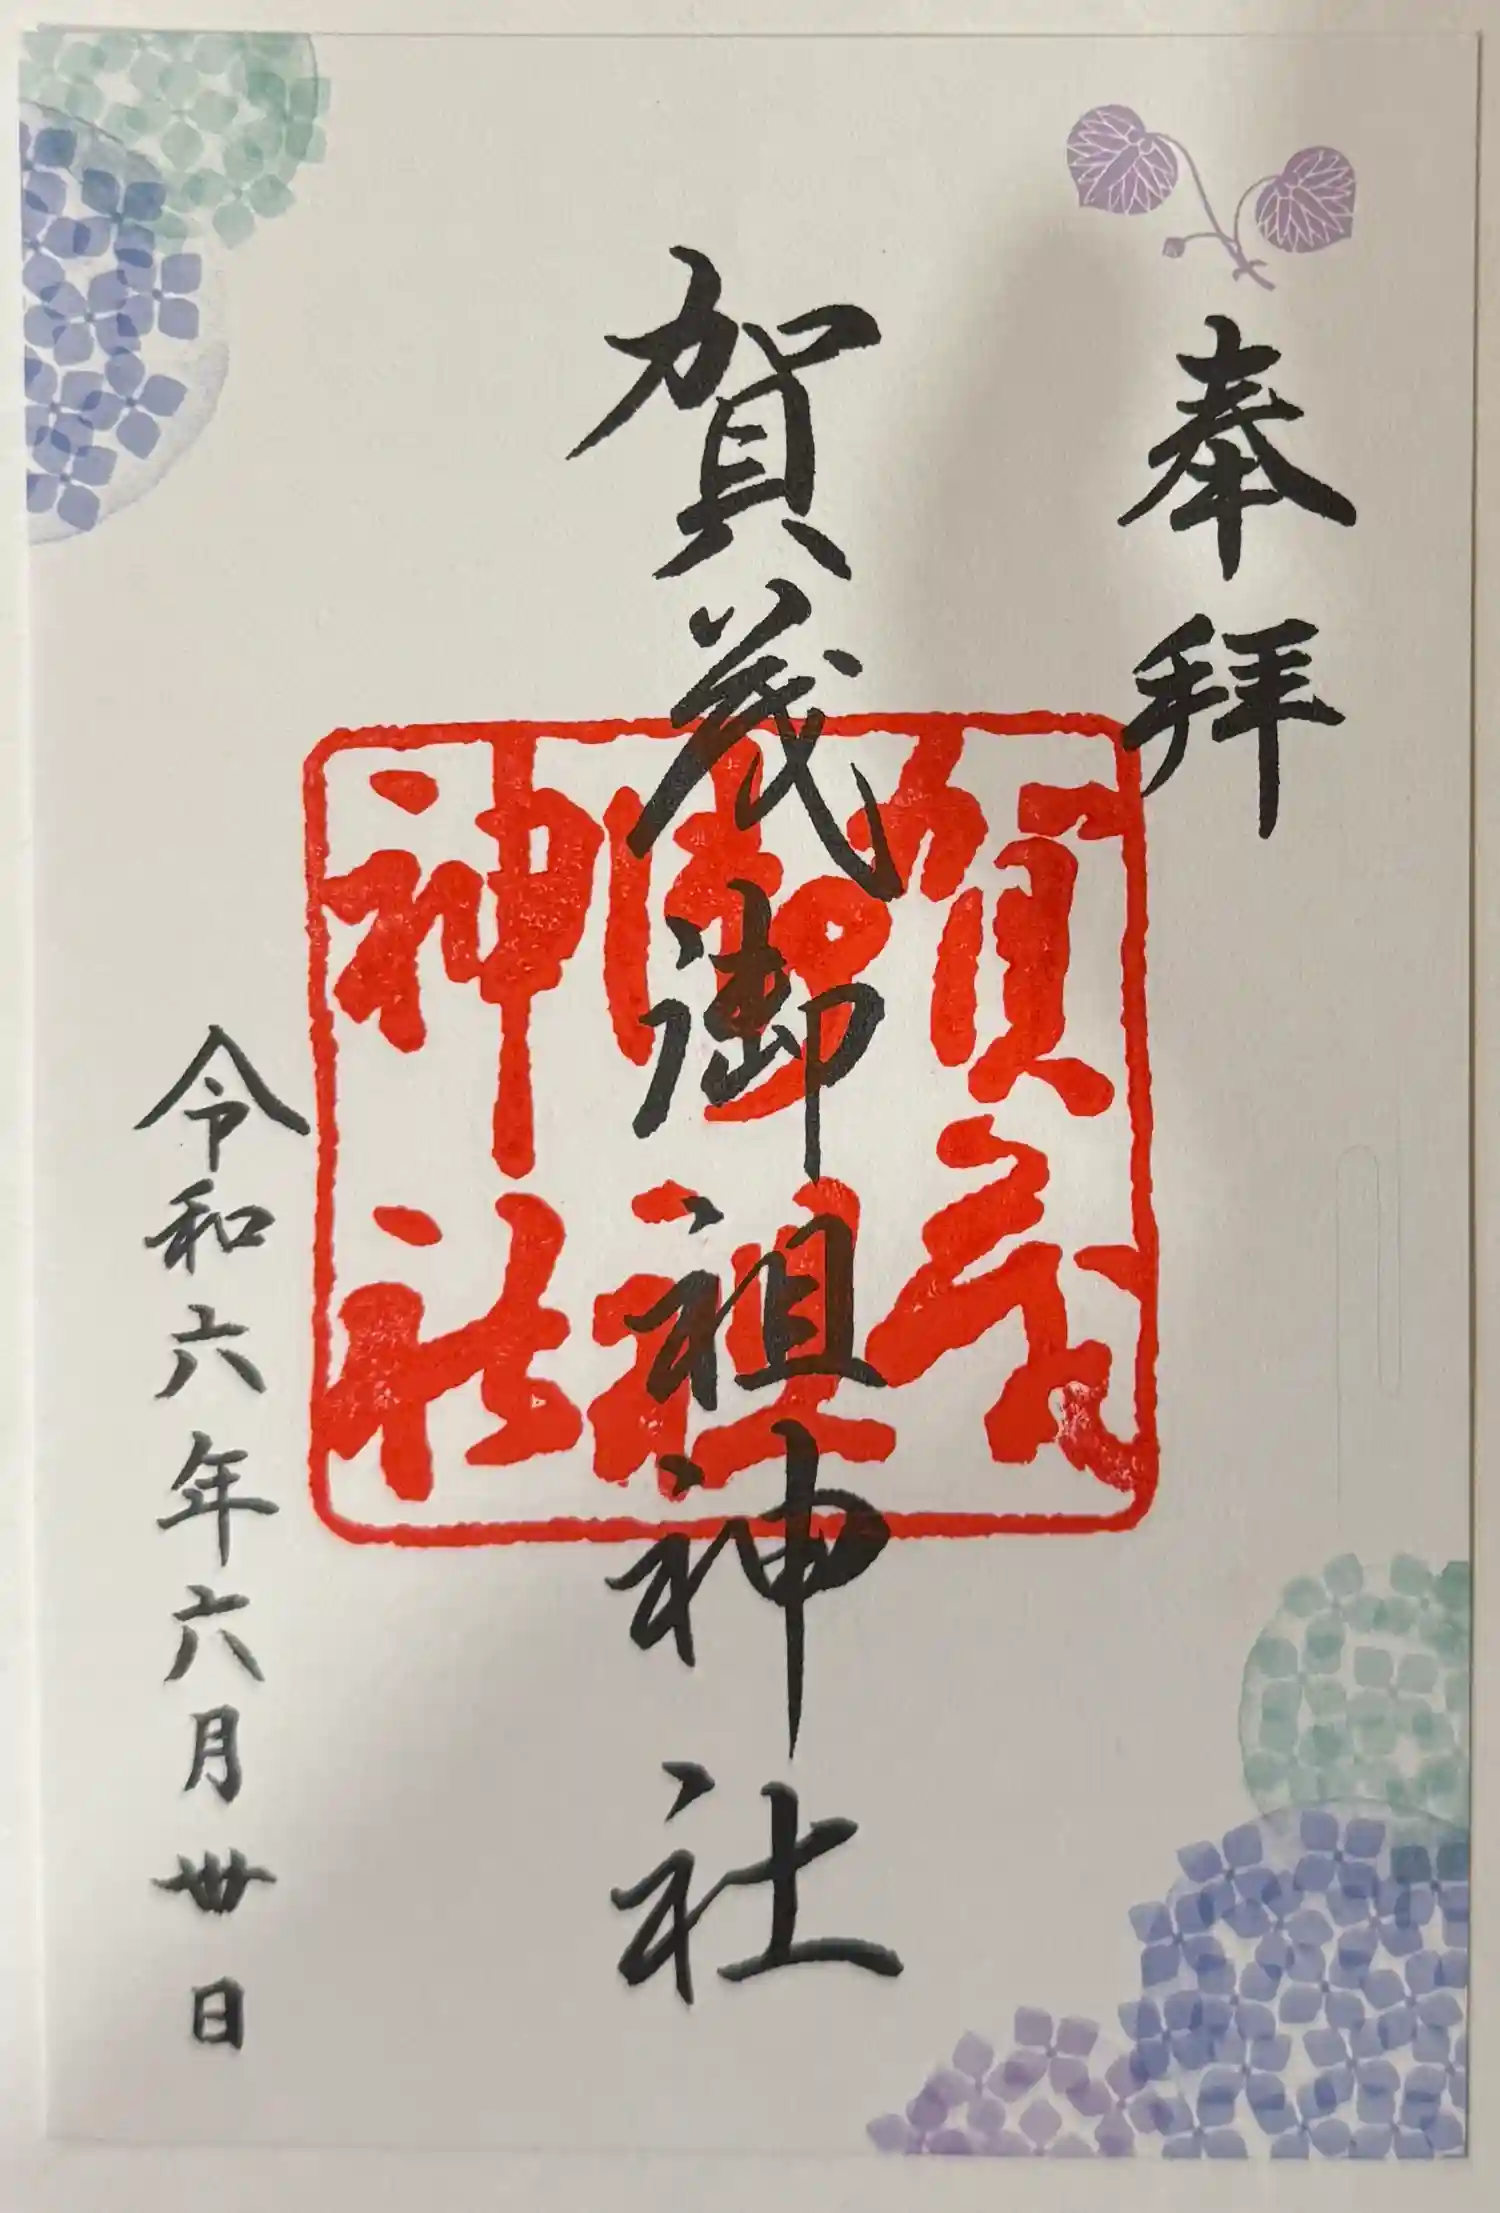 奉拝
賀茂御祖神社
賀茂
御祖
神社
令和六年六月卅日